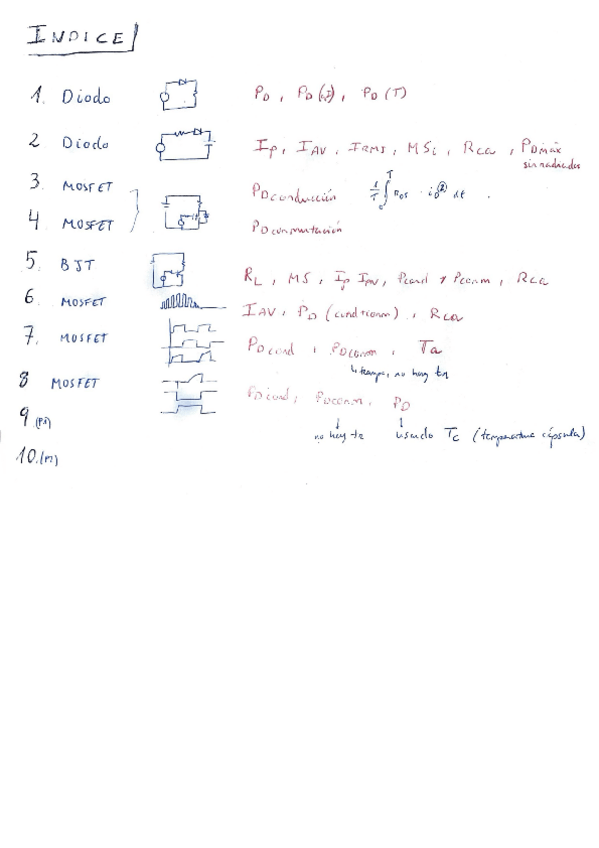 INDICE
1. Diodo P_D, P_D(), P_D(T)
2 Diodo I_P, I_AV, I_RMS, MS_i, R_ca, P_Dmáx
sin radiador
3. MOSFET P_D conducción 1/T ∫₀ᵀ v_DS · i_D dt
4. MOSFET P_D conmutación
5. BJT R_L, MS, I_P I_AV, P_cond y P_conm, R_ca
6. MOSFET I_AV, P_D (), R_ca
7. MOSFET P_D cond, P_D conm, Ta
no hay
8 MOSFET P_D cond, P_D conm, P_D
no hay usando T_C (temperatura cápsula)
9 (P1)
10. (P2)